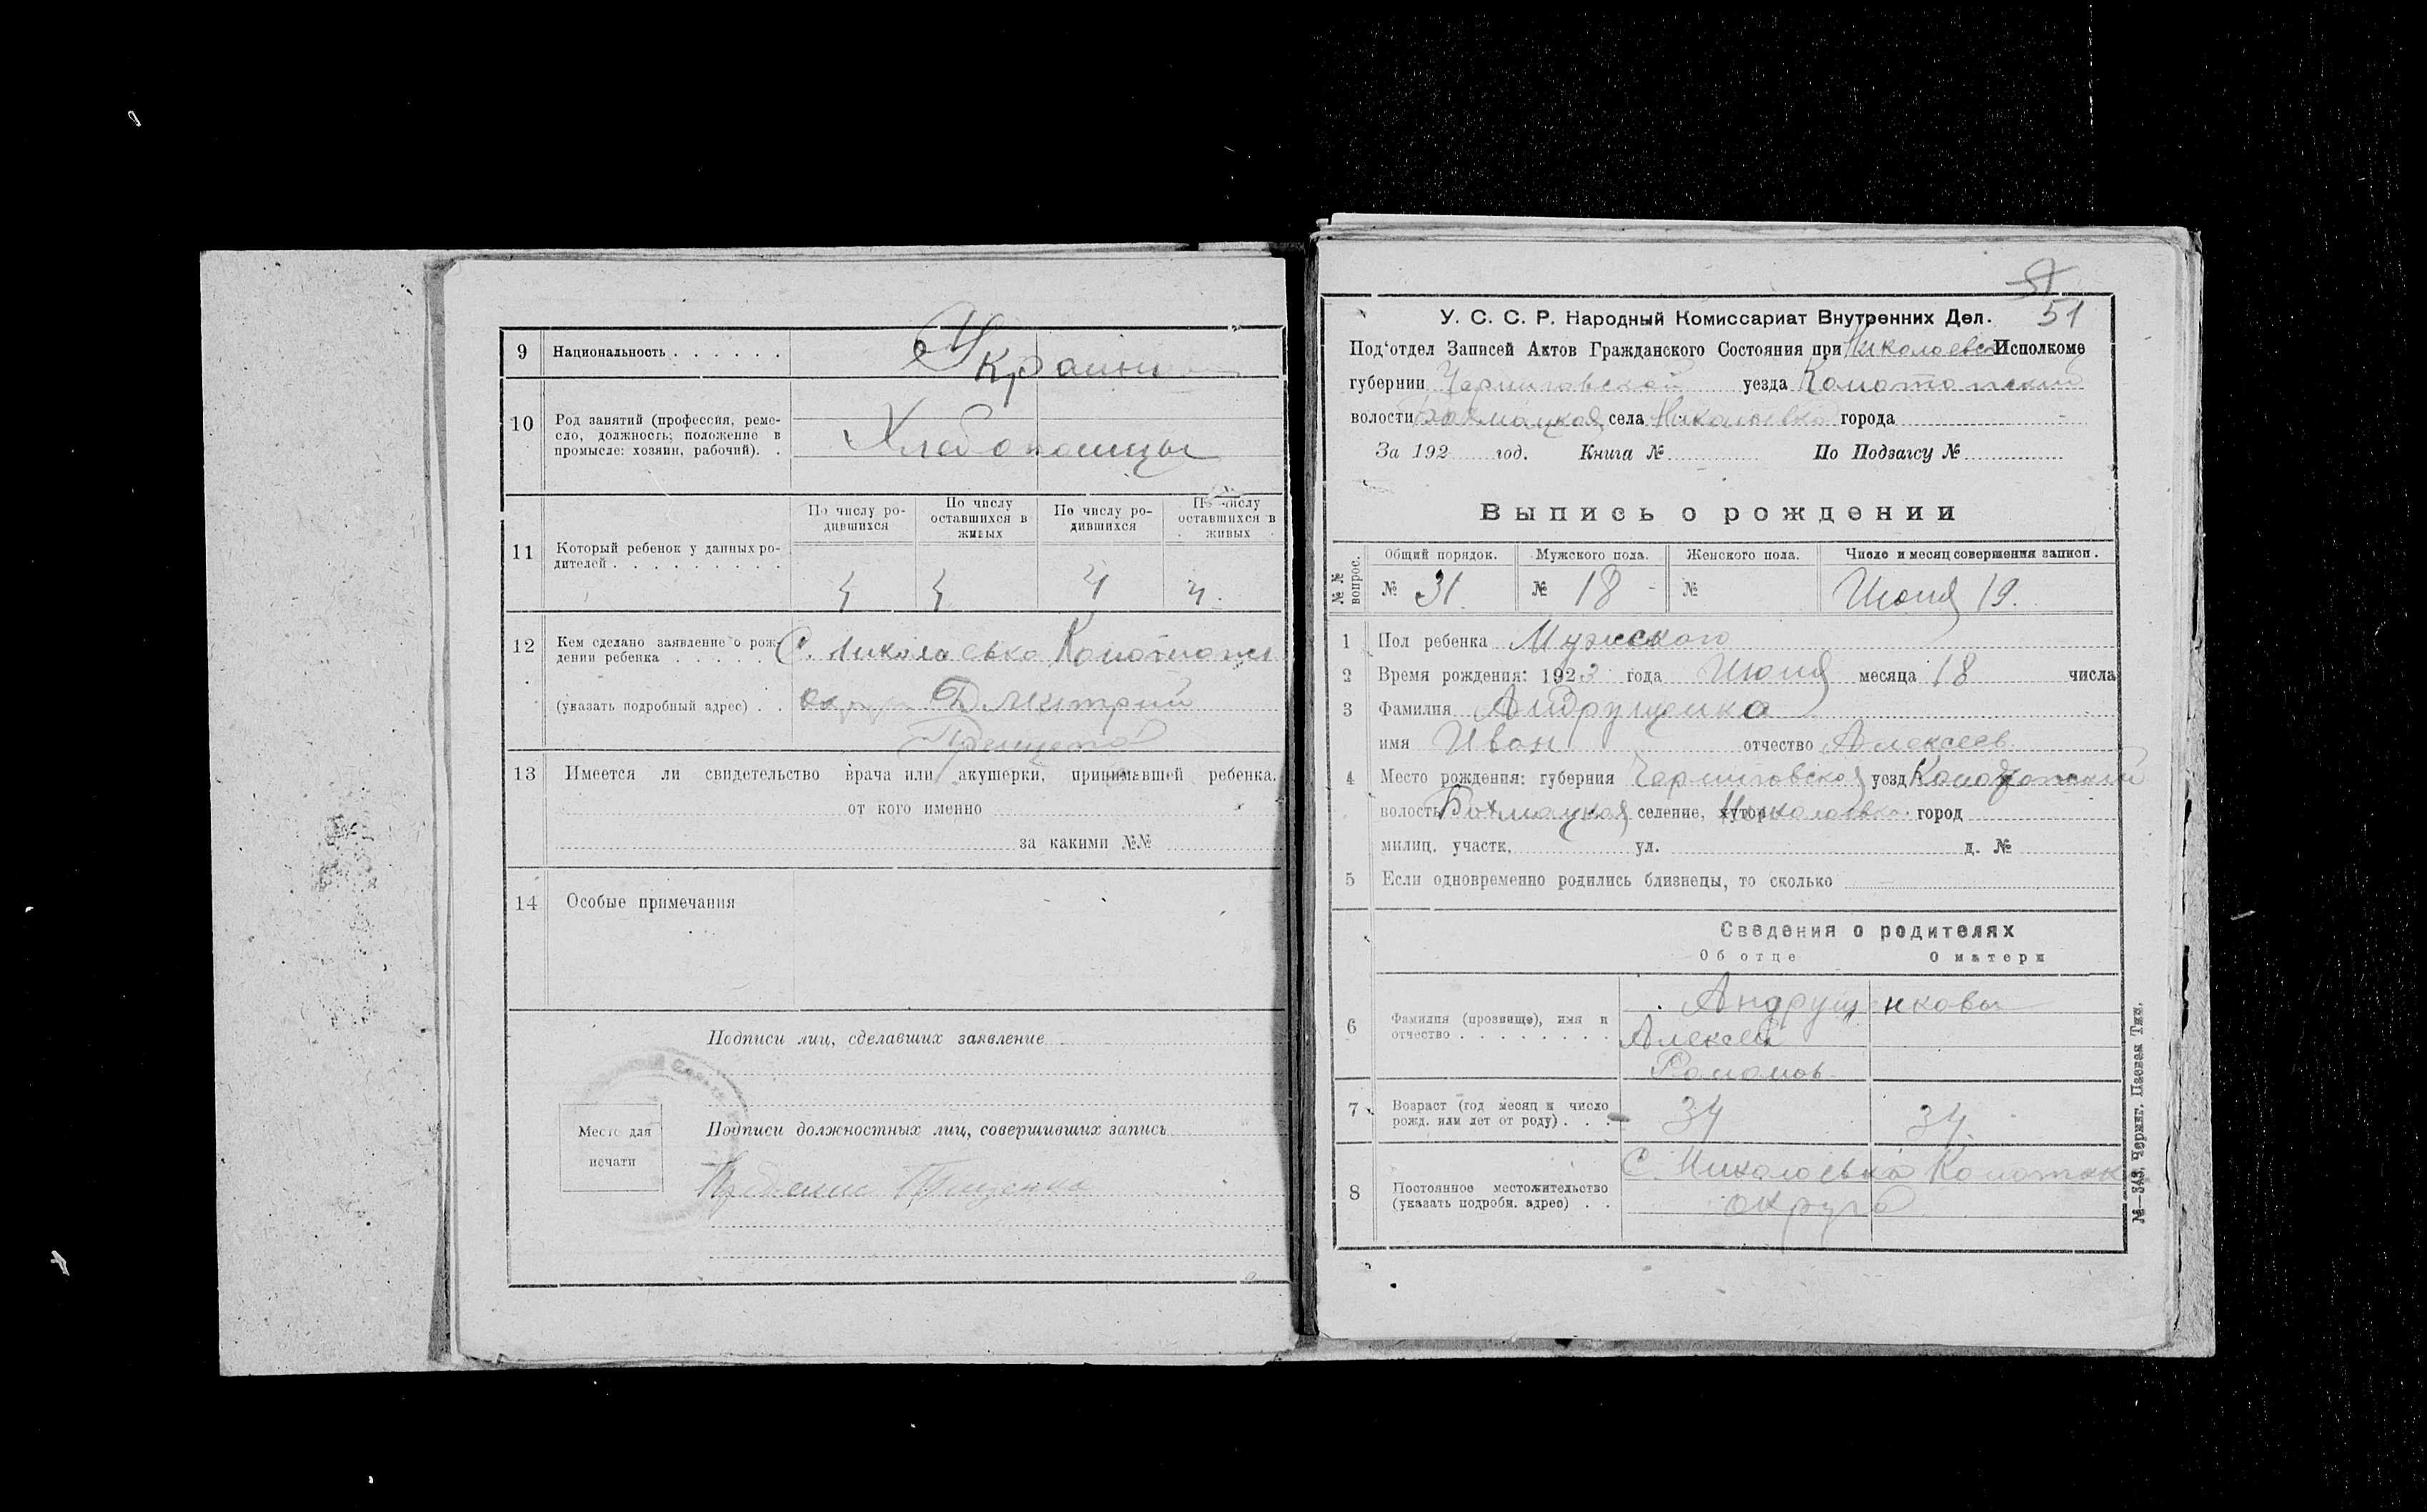 9 Национальность . . . . . .
Украин
10 Род занятий (профессия, реме-
сло, должность; положение в
промысле: хозяин, рабочий). .
Хлебопашцы
По числу ро-
дившихся
По числу
оставшихся в
живых
По числу ро-
дившихся
По числу
оставшихся в
живых
11 Который ребенок у данных ро-
дителей . . . . . . . . .
4 4 4 4.
12 Кем сделано заявление о рож-
дении ребенка . . . . . С. Николаевка Конотопск
(указать подробный адрес) . . округа Дмитрий
13 Имеется ли свидетельство врача или акушерки, принимавшей ребенка.
от кого именно
за какими №№
14 Особые примечания
Подписи лиц, сделавших заявление
Место для
печати
Подписи должностных лиц, совершивших запись
51
51
У. С. С. Р. Народный Комиссариат Внутренних Дел.
Под'отдел Записей Актов Гражданского Состояния при Николаевск Исполкоме
губернии Черниговской уезда Конотопский
волости Бахмацкая села Николаевка города -
За 192 год. Книга № По Подзагсу №
Выпись о рождении
№ №
вопрос.
Общий порядок. Мужского пола. Женского пола. Число и месяц совершения записи.
№ 31. № 18 - № Июня 19.
1 Пол ребенка Мужского
2 Время рождения: 1923 года Июня месяца 18 числа
3 Фамилия Андрущенко
имя Иван отчество Алексеев
4 Место рождения: губерния Черниговская уезд Конотопский
волость Бахмацкая селение, хутор Николаевка город
милиц. участк. ул. д. №
5 Если одновременно родились близнецы, то сколько —
Сведения о родителях
Об отце О матери
6 Фамилия (прозвище), имя и
отчество . . . . . . . .
Андрущенковы
Алексей
Романов
7 Возраст (год месяц и число
рожд. или лет от роду) . . .
34 34.
8 Постоянное местожительство
(указать подробн. адрес) . .
С. Николаевка Конотоп
округа
№—343. Черниг. Паевая Тип.